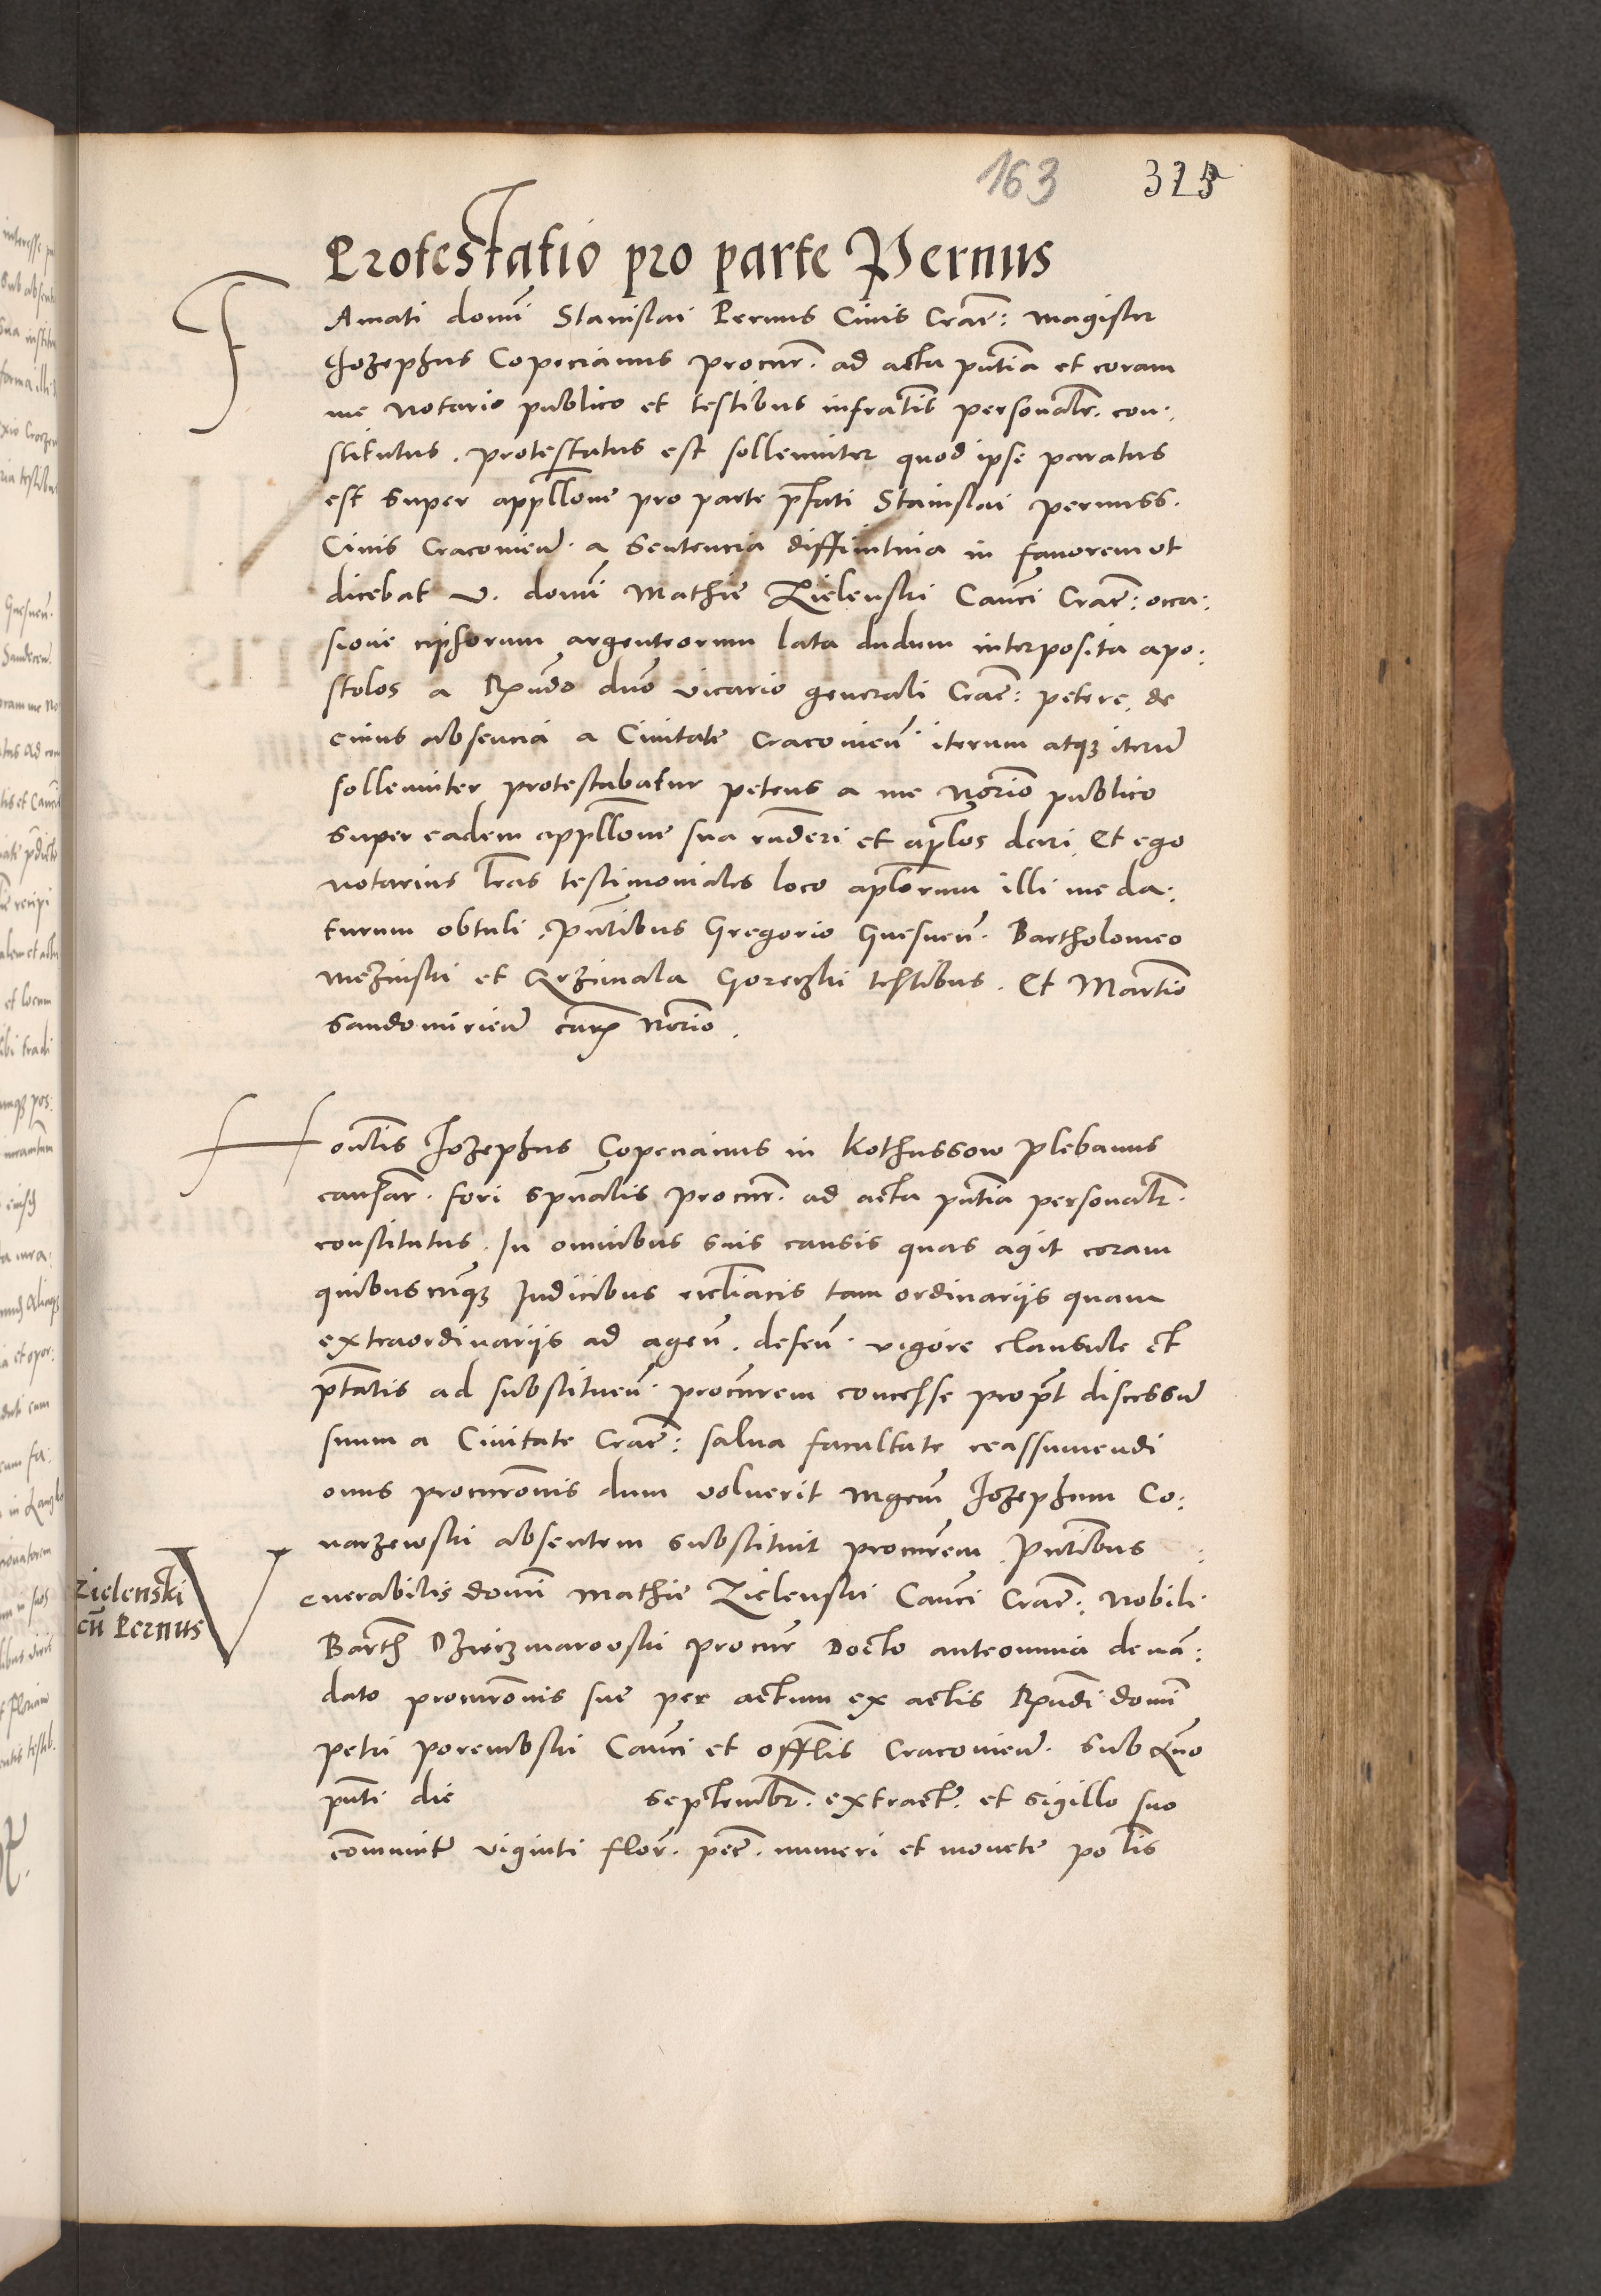 163 325
Protestatio pro parte Pernus
Famati domī Stanislai Pernus Civis Crac̄: magister
Jozephus Copecianus procur̄. ad acta pn̄tia et coram
me notario publico et testibus infrat̄is personalr̄. con:
stitutus. protestatus est sollenniter quod ipse paratus
est super appl̄lone pro parte p̄fati Stanislai pernuss.
Civis Cracovien̄. a sentencia diffinitiva in favorem ut
dicebat v. domī Mathie Zielenski Can̄ci Crac̄: occa:
sione ciphorum argenteorum lata dudum interposita apo:
stolos a Rn̄do dn̄o vicario generali Crac̄: petere. de
cuius absencia a Civitate Cracovien̄. iterum atqȝ iterū
sollenniter protestabatur petens a me nōrio publico
super eadem appl̄lone sua rn̄deri et ap̄los dari. Et ego
notarius l̄ras testimoniales loco ap̄lorum illi me da:
turum obtuli. pn̄tibus Gregorio Gnesnen̄. Bartholomeo
mezinski et Grzimala Goreczki testibus. Et Martīo
sandomirien̄ cur̄ nōrio.
Honl̄is Jozephus Copecianus in Kothussow plebanus
causar̄. fori spūalis procur̄. ad acta pn̄tia personalr̄.
constitutus. In omnibus suis causis quas agit coram
quibuscūqȝ Judicibus eccl̄iacis tam ordinariis quam
extraordinariis ad agen̄. defen̄. vigore clausule et
p̄tatis ad substituen̄. procur̄em concesse propt̄ discessū
suum a Civitate Crac̄: salva facultate reassumendi
onus procurōnis dum voluerit mgrm̄ Jozephum Co:
narzewski absentem substituit procur̄em. pn̄tibus :
Zielenski
cū Pernus
Venerabilis domī Mathie Zielenski Can̄ci Crac̄: Nobili.
Barth̄ Dzierzmarowski procur̄ Docto anteomnia de mā:
dato procurōnis sue per actum ex actis Rn̄di domī
petri porembski Can̄ci et offl̄is Cracovien̄. sub Anno
pn̄ti die septembr̄. extract̄. et sigillo suo
com̄unit̄ viginti flor̄. pec̄. numeri et monete pol̄is